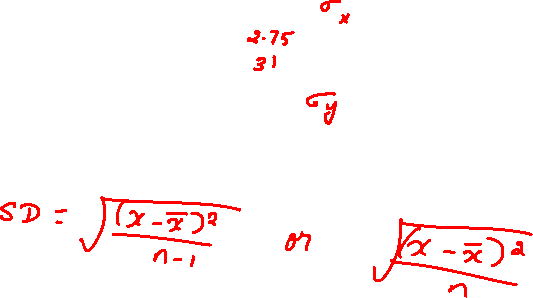 σx
2.75
31
σy
SD = √((x - x̄)² / n-1) or √((x - x̄)² / n)